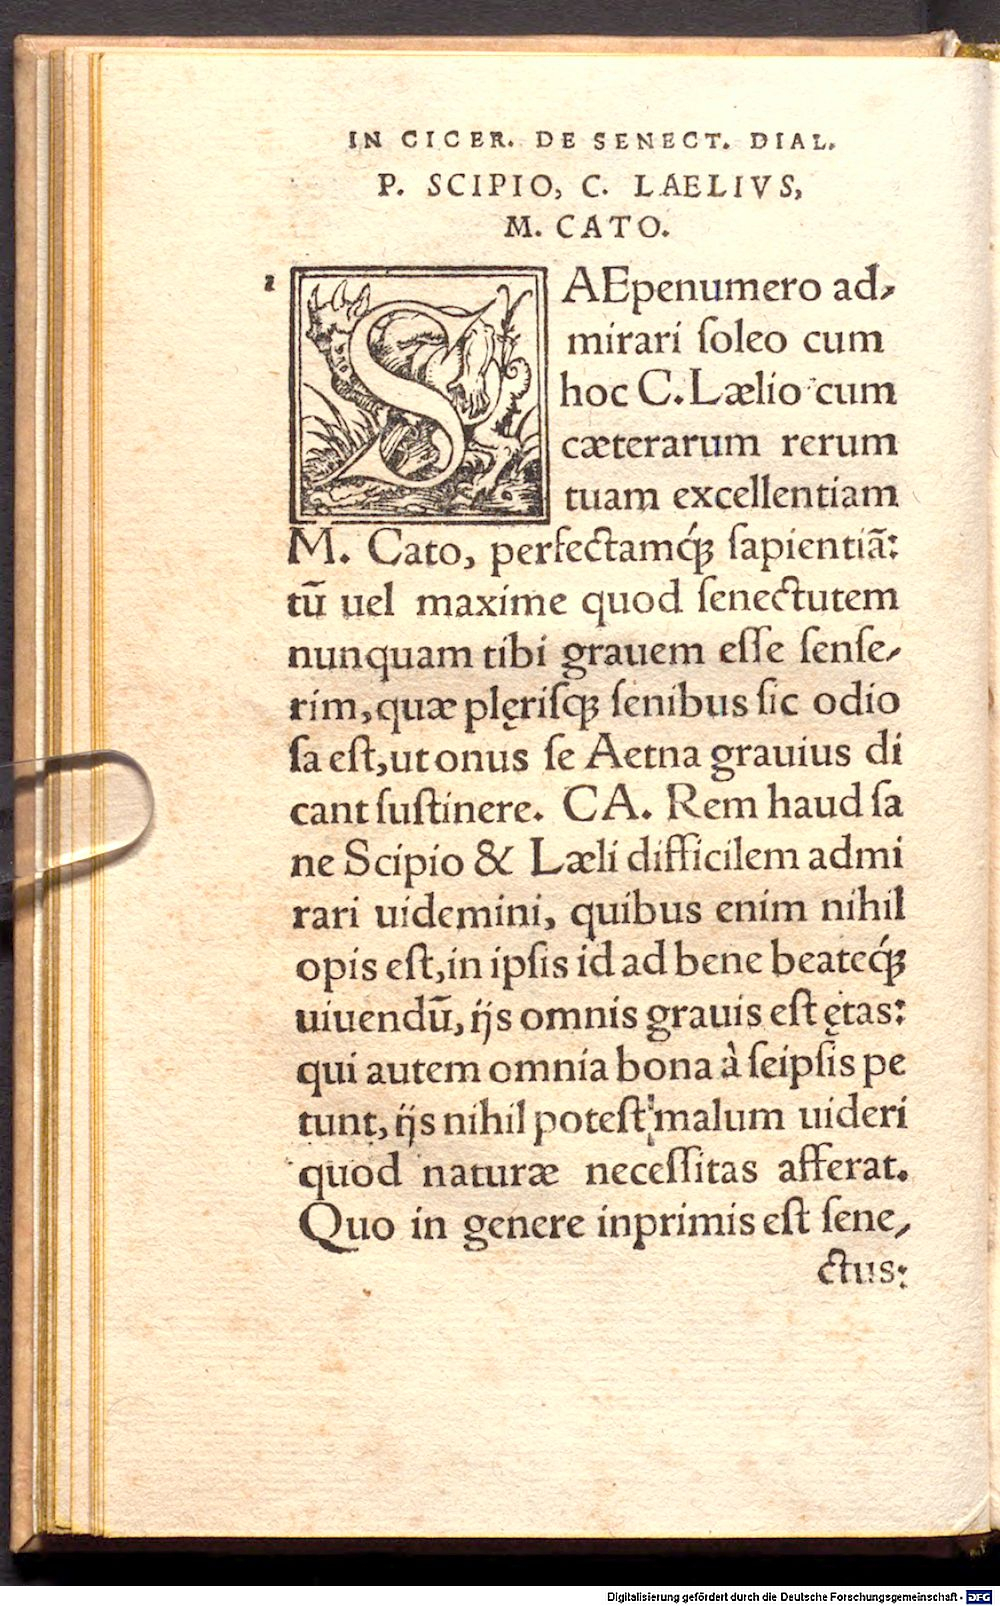 IN CICER. DE SENECT. DIAL.
P. SCIPIO, C. LAELIVS,
M. CATO.
SAEpenumero ad⸗
mirari ſoleo cum
hoc C. Lælio cum
cæterarum rerum
tuam excellentiam
M. Cato, perfectamq́ꝫ ſapientiā:
tū uel maxime quod ſenectutem
nunquam tibi grauem eſſe ſenſe⸗
rim, quæ plęriſqꝫ ſenibus ſic odio
ſa eſt, ut onus ſe Aetna grauius di
cant ſuſtinere. CA. Rem haud ſa
ne Scipio & Læli difficilem admi
rari uidemini, quibus enim nihil
opis eſt, in ipſis id ad bene beateq́ꝫ
uiuendū, ijs omnis grauis eſt ętas:
qui autem omnia bona à ſeipſis pe
tunt, ijs nihil poteſt malum uideri
quod naturæ neceſſitas afferat.
Quo in genere inprimis eſt ſene⸗
ctus:
Digitalisierung gefördert durch die Deutsche Forschungsgemeinschaft - DFG